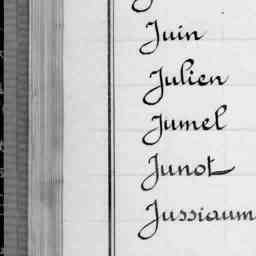 Juin
Julien
Jumel
Junot
Jussiaum